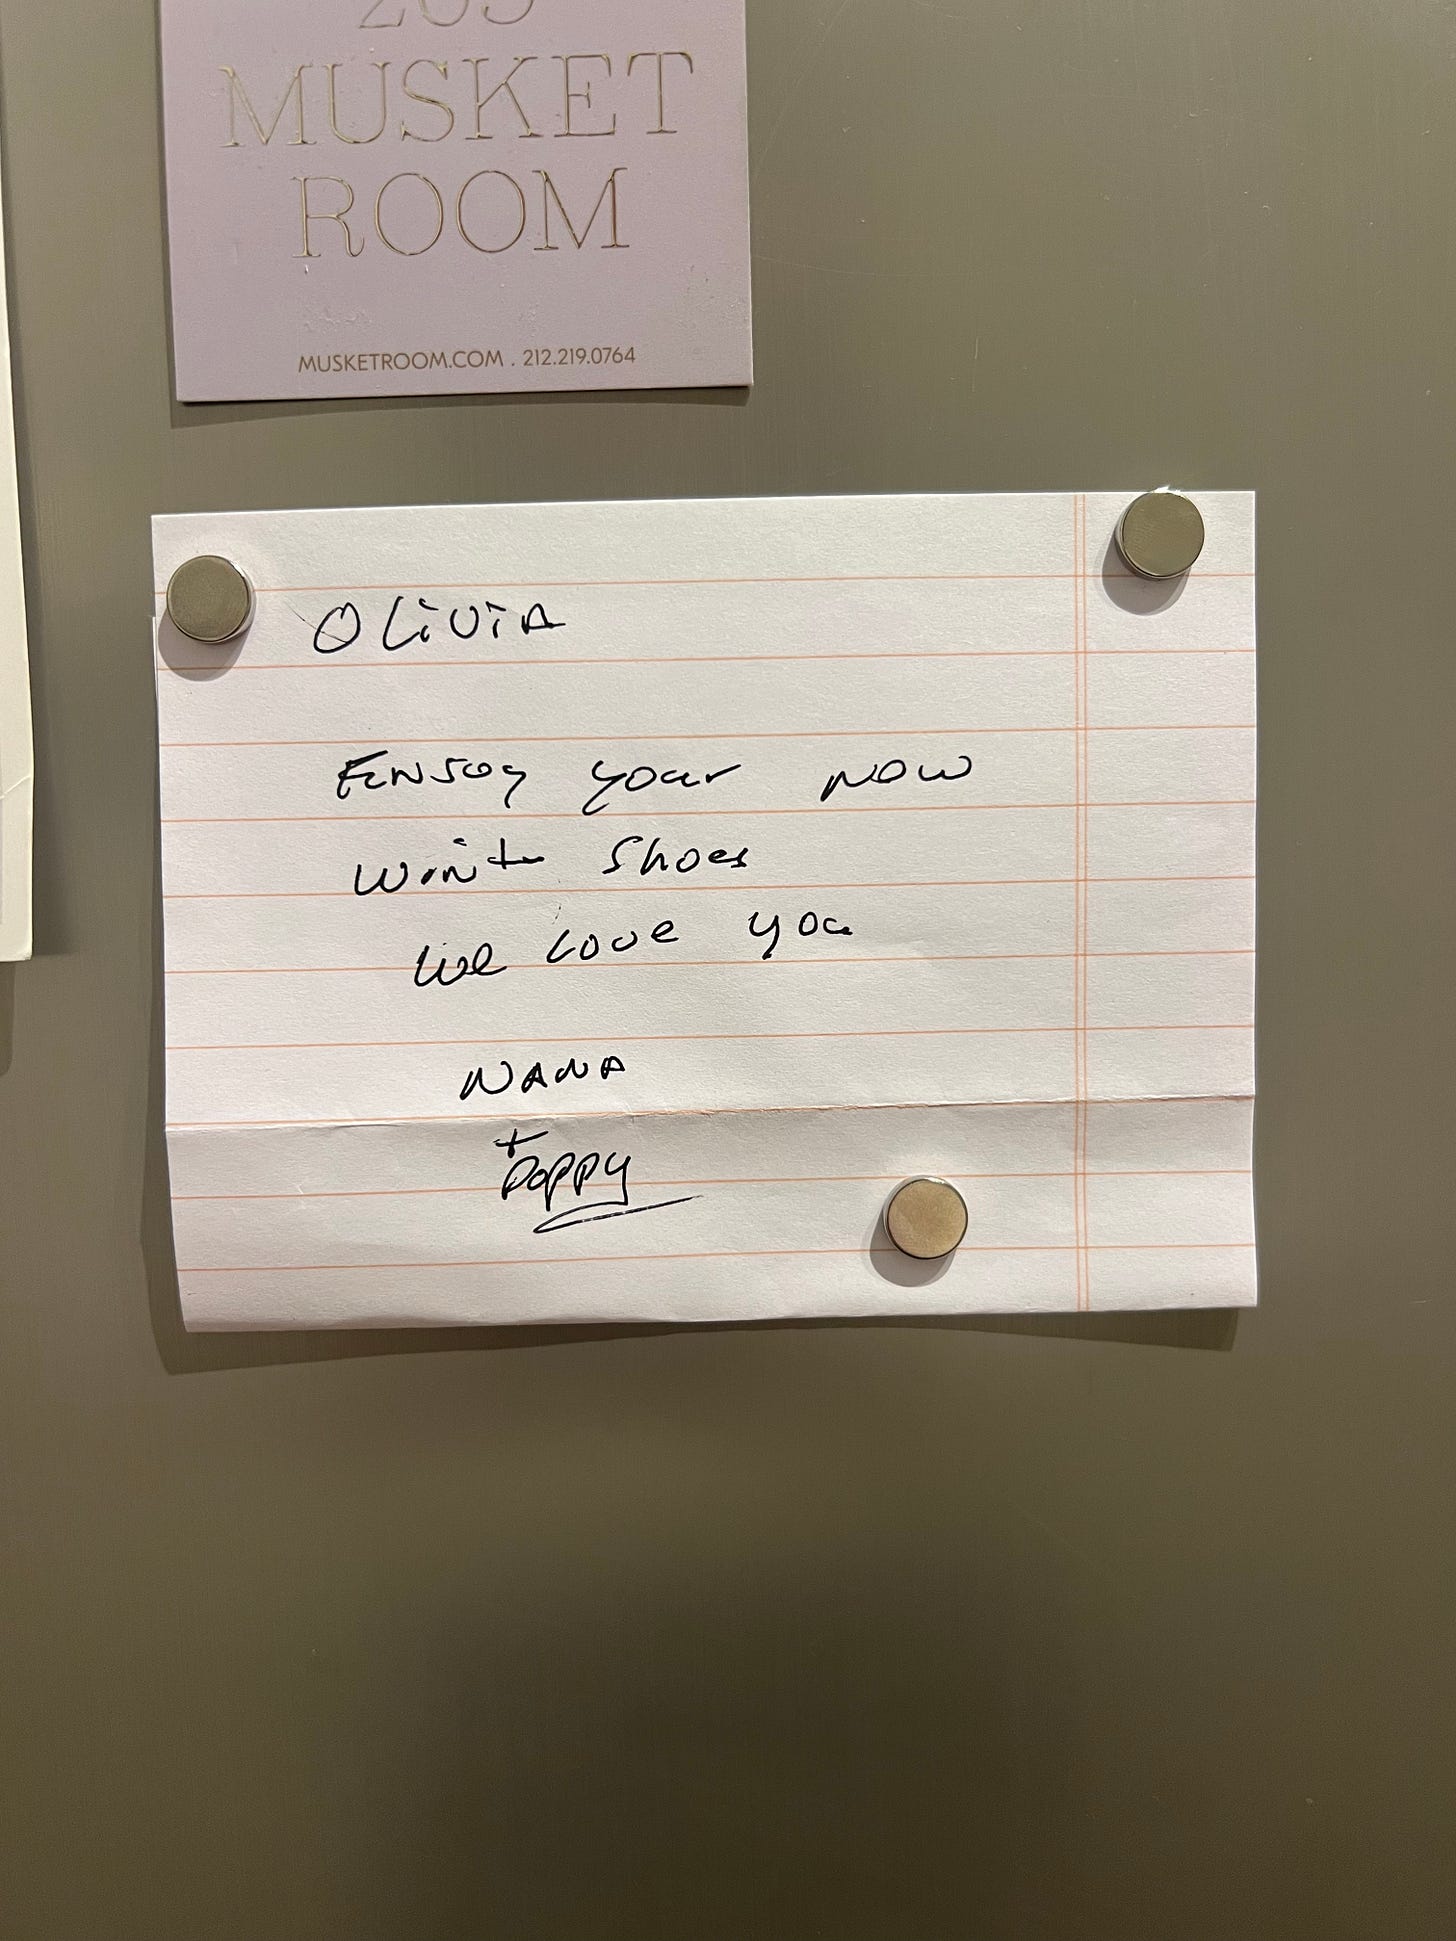 MUSKET
ROOM
MUSKETROOM.COM . 212.219.0764
OLiViA
ENJoy your new
wint shoes
we love you
NANA
+
POPPY